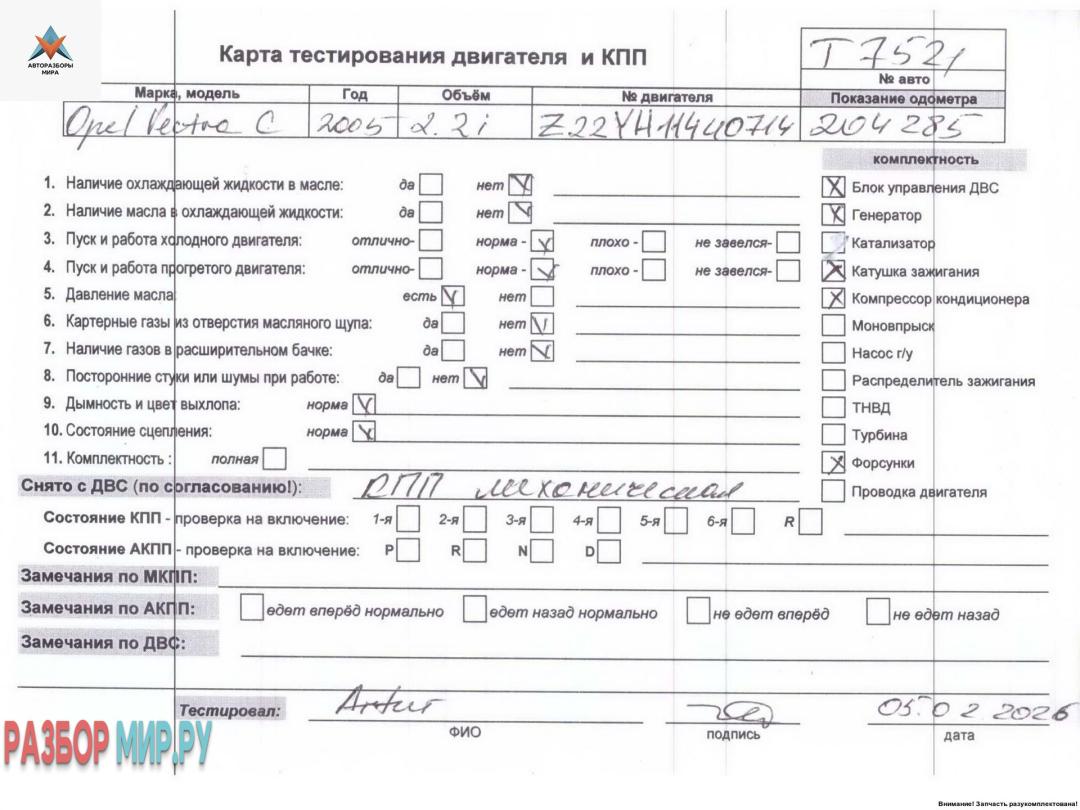 АВТОРАЗБОРЫ
МИРА
Карта тестирования двигателя и КПП
T 7521
№ авто
Марка, модель Год Объём № двигателя Показание одометра
Opel Vectra C 2005 2.2i Z22YH11440714 204285
комплектность
1. Наличие охлаждающей жидкости в масле: да нет
Блок управления ДВС
2. Наличие масла в охлаждающей жидкости: да нет
Генератор
3. Пуск и работа холодного двигателя: отлично- норма - плохо - не завелся-
Катализатор
4. Пуск и работа прогретого двигателя: отлично- норма - плохо - не завелся-
Катушка зажигания
5. Давление масла: есть нет
Компрессор кондиционера
6. Картерные газы из отверстия масляного щупа: да нет
Моновпрыск
7. Наличие газов в расширительном бачке: да нет
Насос г/у
8. Посторонние стуки или шумы при работе: да нет
Распределитель зажигания
9. Дымность и цвет выхлопа: норма
ТНВД
10. Состояние сцепления: норма
Турбина
11. Комплектность : полная
Форсунки
Снято с ДВС (по согласованию!): КПП механическая
Проводка двигателя
Состояние КПП - проверка на включение: 1-я 2-я 3-я 4-я 5-я 6-я R
Состояние АКПП - проверка на включение: P R N D
Замечания по МКПП:
Замечания по АКПП: едет вперёд нормально едет назад нормально не едет вперёд не едет назад
Замечания по ДВС:
Тестировал: Artur 05.02.2026
ФИО подпись дата
РАЗБОРМИР.РУ
Внимание! Запчасть разукомплектована!